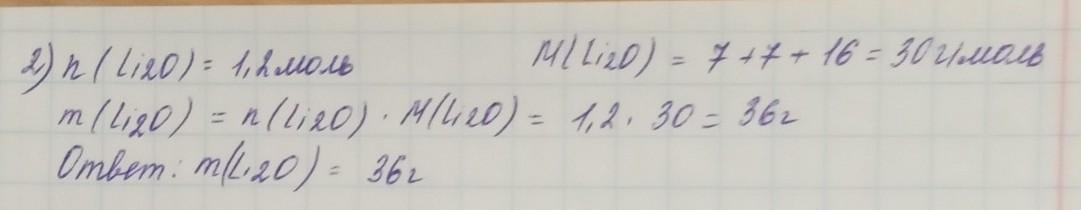 2) n(Li2O) = 1,2 моль M(Li2O) = 7+7+16 = 30 г/моль
m(Li2O) = n(Li2O) · M(Li2O) = 1,2 · 30 = 36г
Ответ: m(Li2O) = 36г